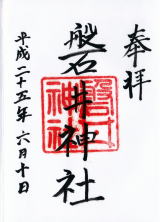 奉拝
磐井神社
平成二十五年六月十日